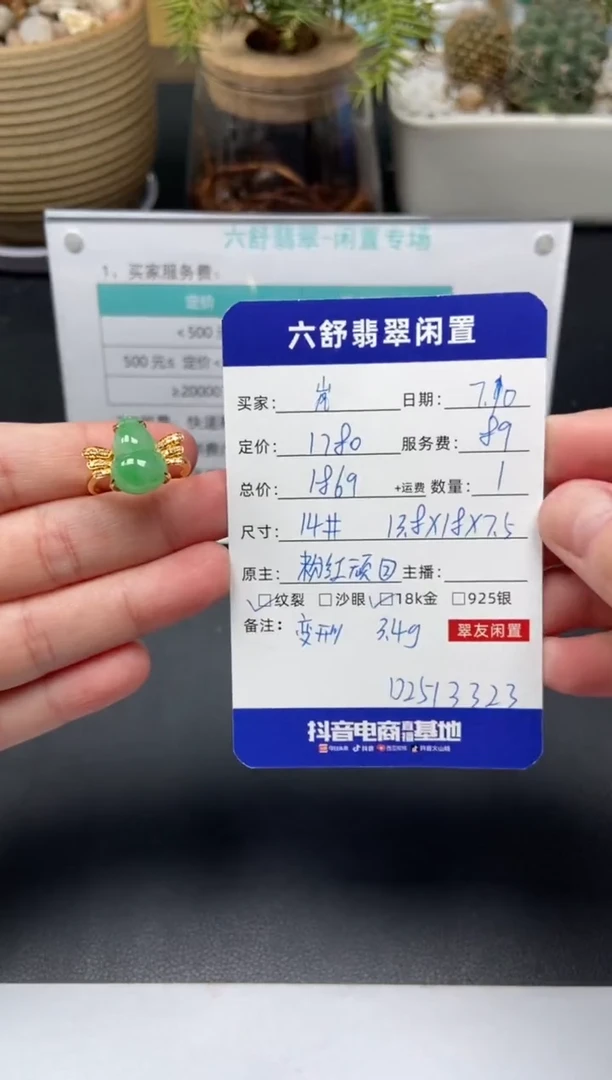 六舒翡翠-闲置专场
1、买家服务费：
定价
<500元
500元≤ 定价<
≥20000
六舒翡翠闲置
买家： 岚 日期： 7.10
定价： 1780 服务费： 89
总价： 1869 +运费 数量： 1
尺寸： 14# 13.8X18X7.5
原主： 粉红顽回 主播：
纹裂 沙眼 18k金 925银
备注： 变形 3.49 翠友闲置
02513323
抖音电商直播基地
抖音 抖音火山版